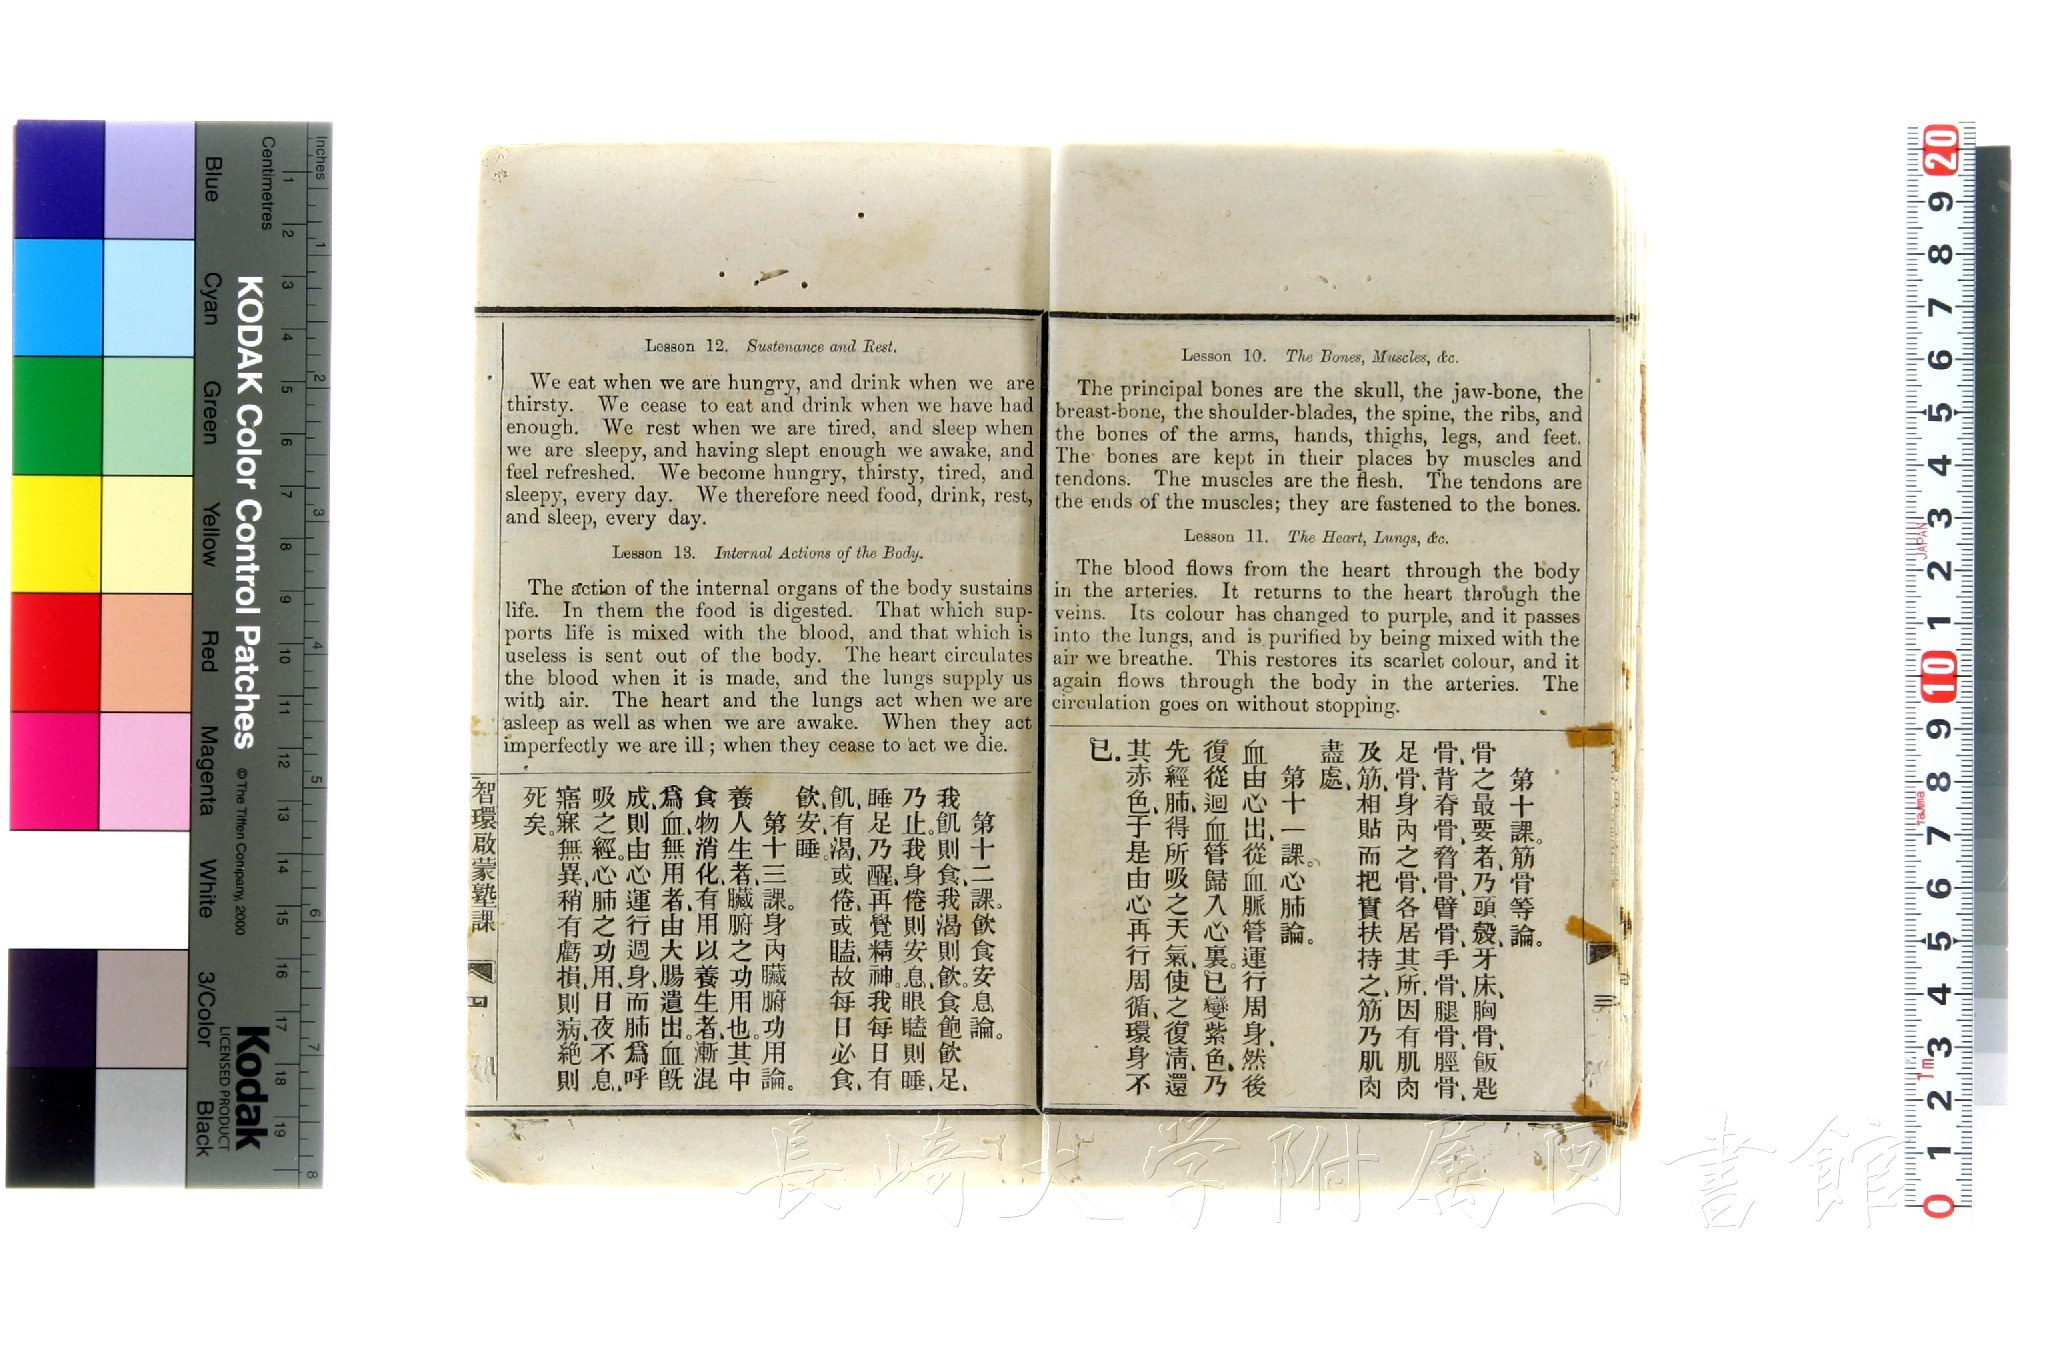 Lesson 10. The Bones, Muscles, &c.
The principal bones are the skull, the jaw-bone, the
breast-bone, the shoulder-blades, the spine, the ribs, and
the bones of the arms, hands, thighs, legs, and feet.
The bones are kept in their places by muscles and
tendons. The muscles are the flesh. The tendons are
the ends of the muscles; they are fastened to the bones.
Lesson 11. The Heart, Lungs, &c.
The blood flows from the heart through the body
in the arteries. It returns to the heart through the
veins. Its colour has changed to purple, and it passes
into the lungs, and is purified by being mixed with the
air we breathe. This restores its scarlet colour, and it
again flows through the body in the arteries. The
circulation goes on without stopping.
第十課。筋骨等論。
骨之最要者、乃頭殼、牙床、胸骨、飯匙
骨、背脊骨、脅骨、臂骨、手骨、腿骨、脛骨、
足骨、身內之骨、各居其所、因有肌肉
及筋、相貼而把實扶持之、筋乃肌肉
盡處、
第十一課。心肺論。
血由心出、從血脈管運行周身、然後
復從迴血管歸入心裏。已變紫色、乃
先經肺、得所吸之天氣、使之復淸、還
其赤色、于是由心再行周循、環身不
已。
Lesson 12. Sustenance and Rest.
We eat when we are hungry, and drink when we are
thirsty. We cease to eat and drink when we have had
enough. We rest when we are tired, and sleep when
we are sleepy, and having slept enough we awake, and
feel refreshed. We become hungry, thirsty, tired, and
sleepy, every day. We therefore need food, drink, rest,
and sleep, every day.
Lesson 13. Internal Actions of the Body.
The action of the internal organs of the body sustains
life. In them the food is digested. That which sup-
ports life is mixed with the blood, and that which is
useless is sent out of the body. The heart circulates
the blood when it is made, and the lungs supply us
with air. The heart and the lungs act when we are
asleep as well as when we are awake. When they act
imperfectly we are ill; when they cease to act we die.
第十二課。飲食安息論。
我飢則食、我渴則飲。食飽飲足、
乃止。我身倦則安息、眼瞌則睡、
睡足乃醒、再覺精神。我每日有
飢、有渴、或倦、或瞌、故每日必食、
飲、安、睡。
第十三課。身內臟腑功用論。
養人生者、臟腑之功用也。其中
食物消化、有用以養生者、漸混
爲血、無用者、由大腸遺出。血旣
成、則由心運行週身、而肺爲呼
吸之經。心肺之功用、日夜不息、
寤寐無異、稍有虧損、則病、絶則
死矣。
智環啟蒙塾課
四
三
KODAK Color Control Patches
© The Tiffen Company, 2000
Kodak
LICENSED PRODUCT
Inches
Centimetres
1 2 3 4 5 6 7 8
1 2 3 4 5 6 7 8 9 10 11 12 13 14 15 16 17 18 19
Blue
Cyan
Green
Yellow
Red
Magenta
White
3/Color
Black
20 9 8 7 6 5 4 3 2 1 10 9 8 7 6 5 4 3 2 1 0
JAPAN
Tajima
1m
長崎大学附属図書館